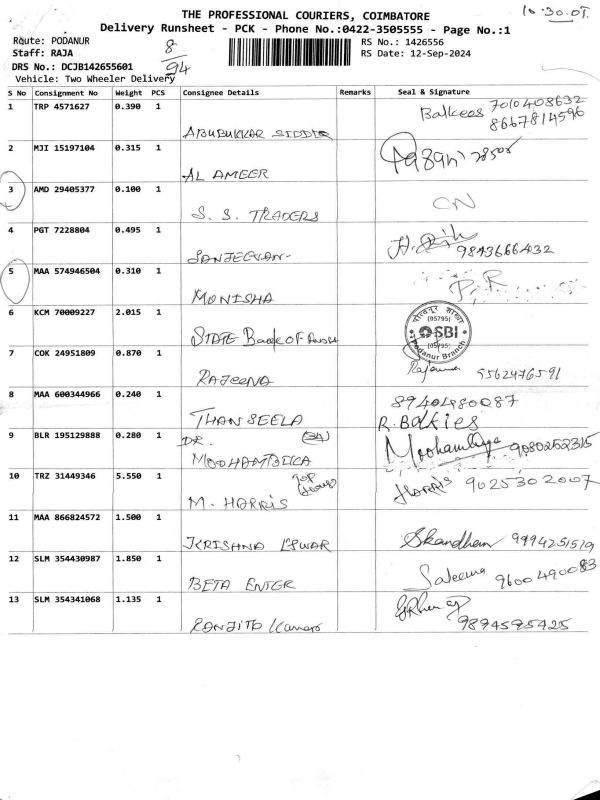 THE PROFESSIONAL COURIERS, COIMBATORE
10.30.01
Delivery Runsheet - PCK - Phone No.:0422-3505555 - Page No.:1
Route: PODANUR 8 RS No.: 1426556
Staff: RAJA 94 RS Date: 12-Sep-2024
DRS No.: DCJB142655601
Vehicle: Two Wheeler Delivery
S No Consignment No Weight PCS Consignee Details Remarks Seal & Signature
1 TRP 4571627 0.390 1 Balkees 7010408632
8667814596
ABUBUKKAR SIDDIR
2 MJI 15197104 0.315 1
AL AMEER
3 AMD 29405377 0.100 1 CN
S. S. TRADERS
4 PGT 7228804 0.495 1
SANJEEVAN 9843666432
5 MAA 574946504 0.310 1 P. R
MONISHA
6 KCM 70009227 2.015 1 (05795)
SBI
(05795)
Podanur Branch
STATE Bank OF
7 COK 24951809 0.870 1
RAJEENA 9562476591
8 MAA 600344966 0.240 1 8940480087
THANSEELA R. Balkies
9 BLR 195129888 0.280 1 DR.
MOOHAMBICA Moohambiga 9080252315
10 TRZ 31449346 5.550 1 TOP
M. HARRIS HARRIS 9025302007
11 MAA 866824572 1.500 1
KRISHNA ESWAR Skandhem 9994251519
12 SLM 354430987 1.850 1 Saleema 9600490083
BETA ENTER
13 SLM 354341068 1.135 1
RANJITH Kumar 9894595425